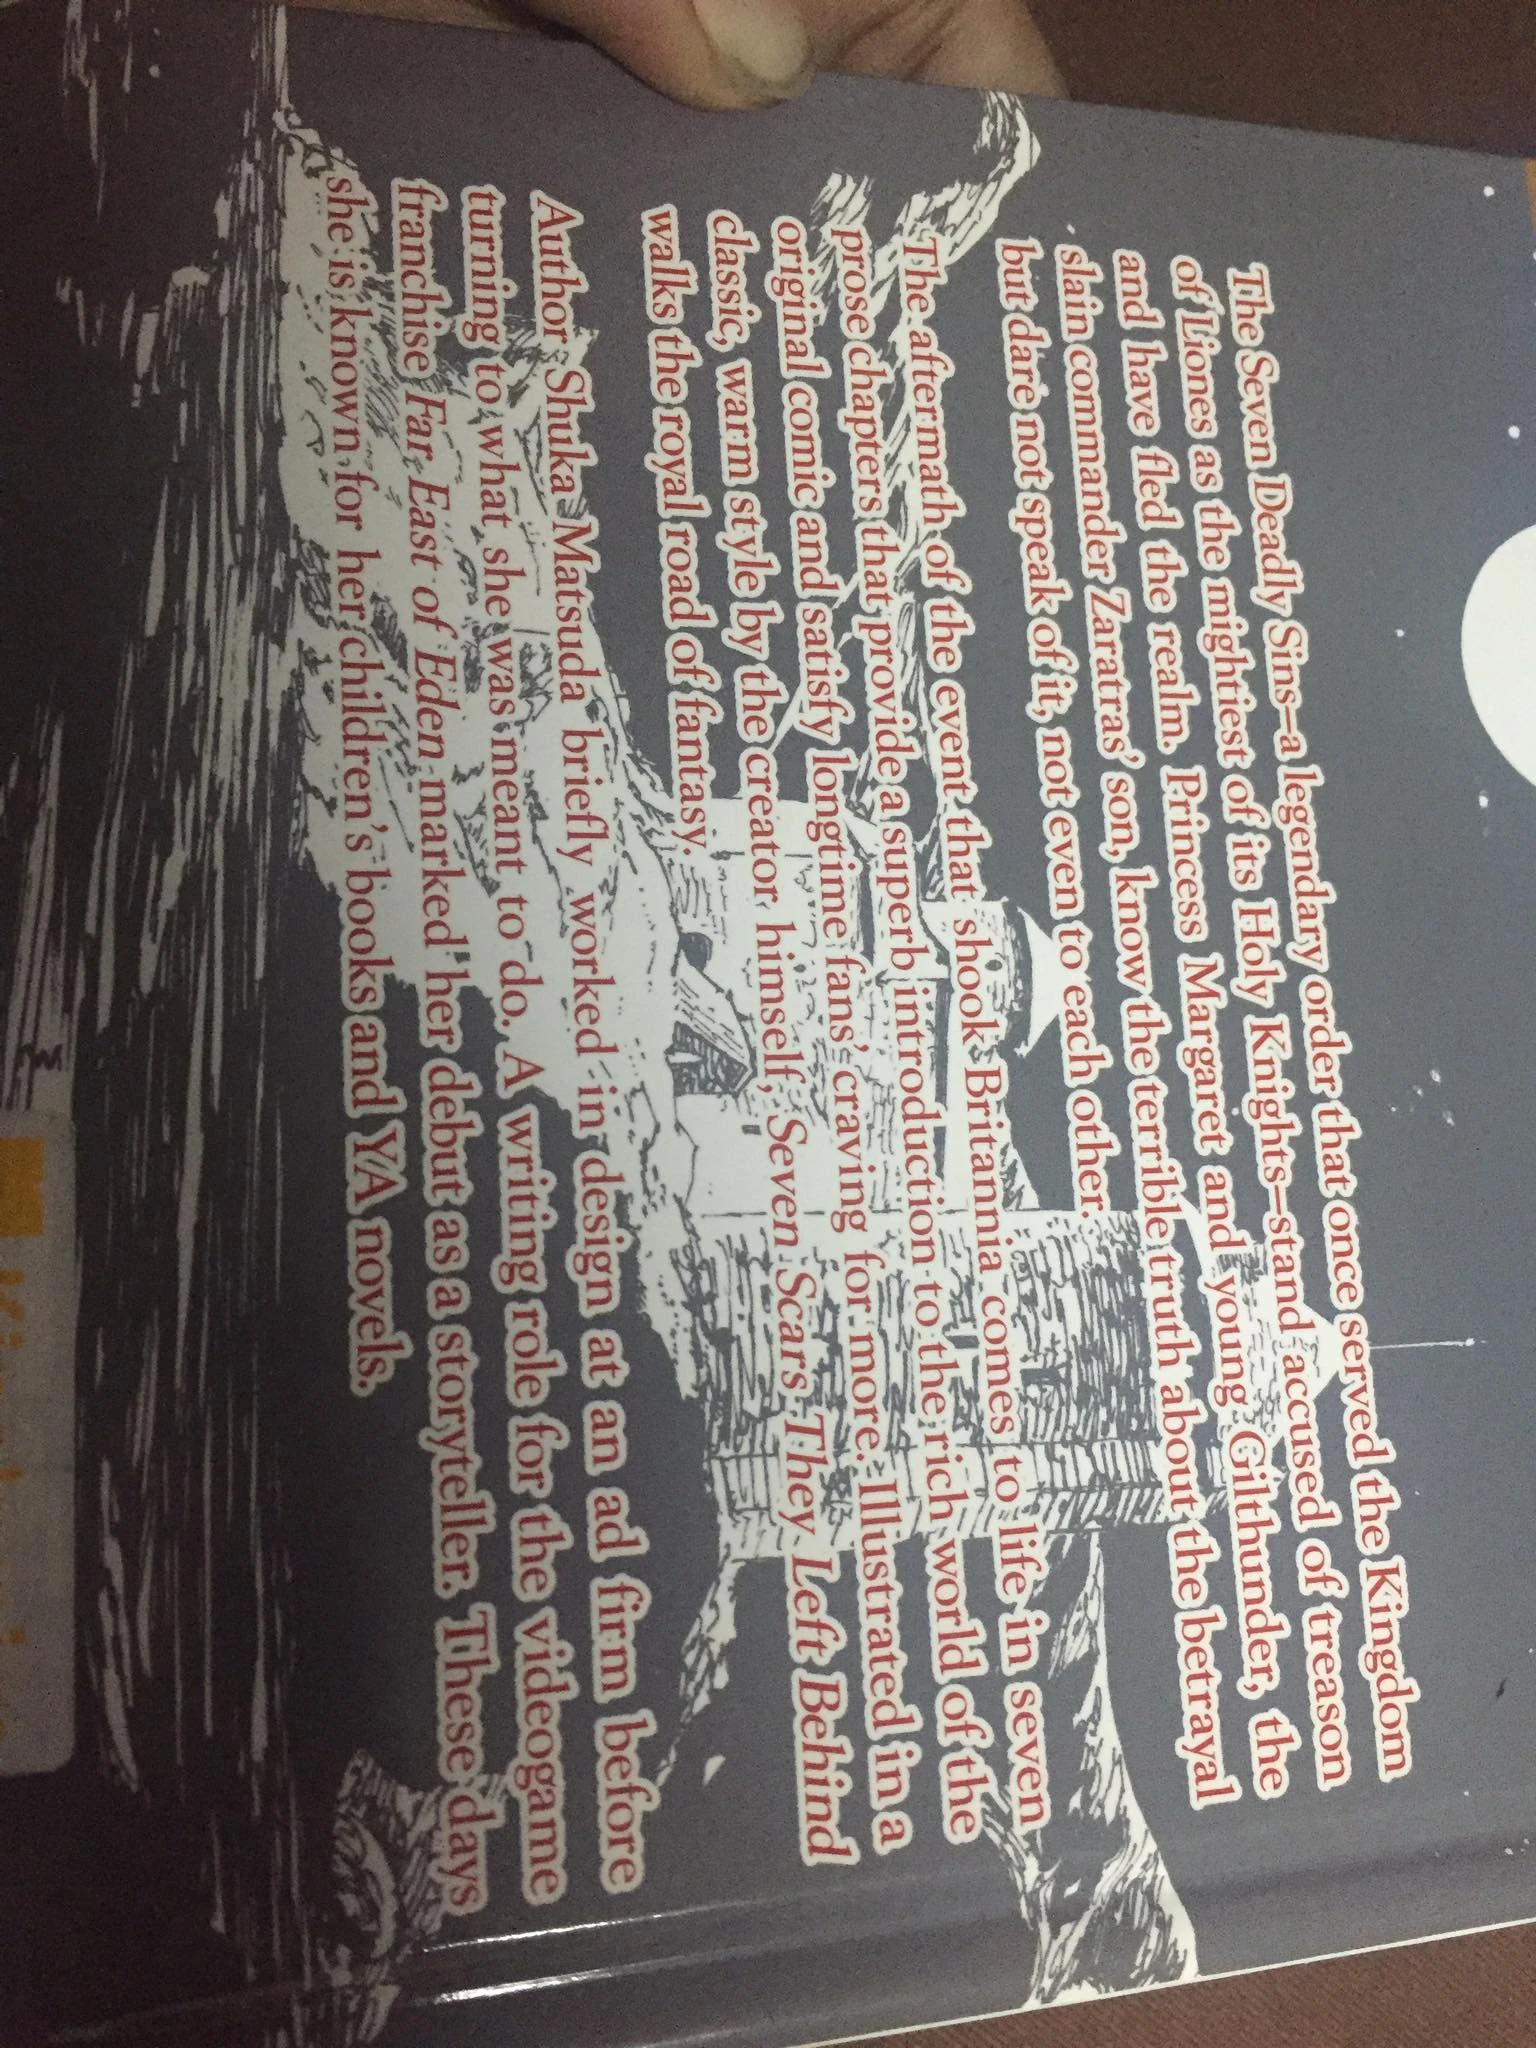 The Seven Deadly Sins—a legendary order that once served the Kingdom
of Liones as the mightiest of its Holy Knights—stand accused of treason
and have fled the realm. Princess Margaret and young Gilthunder, the
slain commander Zaratras' son, know the terrible truth about the betrayal
but dare not speak of it, not even to each other.
The aftermath of the event that shook Britannia comes to life in seven
prose chapters that provide a superb introduction to the rich world of the
original comic and satisfy longtime fans' craving for more. Illustrated in a
classic, warm style by the creator himself, Seven Scars They Left Behind
walks the royal road of fantasy.
Author Shuka Matsuda briefly worked in design at an ad firm before
turning to what she was meant to do. A writing role for the videogame
franchise Far East of Eden marked her debut as a storyteller. These days
she is known for her children's books and YA novels.